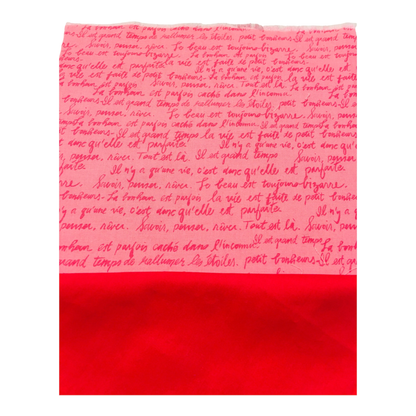 Le bonheur est parfois caché dans l'inconnu.
Il est grand temps de rallumer les étoiles. petit bonheurs. Il est grand
Savoir, penser, rêver. Le beau est toujours bizarre.
donc qu'elle est parfaite la vie est faite de petit
Il n'y a qu'une vie, c'est donc qu'elle est parfaite
la vie est faite de petit bonheurs.
bonheurs. Le bonheur est parfois Tout est là.
Il est grand temps de rallumer les étoiles.
penser, rêver. Le beau est toujours bizarre.
Le bonheur est parfois caché dans l'inconnu. Savoir, penser,
rêver. Il est grand temps la vie est faite de petit bonheurs
Il n'y a qu'une vie, c'est donc qu'elle est parfaite.
Savoir, penser, rêver. Tout est là. Il est grand temps.
bonheurs. Savoir, penser, rêver. Le beau est toujours bizarre.
bonheurs. Le bonheur est parfois la vie est faite de petit
n'y a qu'une vie, c'est donc qu'elle est parfaite. Il n'y a
Savoir, penser, rêver. Tout est là. Savoir,
bonheur est parfois caché dans l'inconnu. Il est grand temps Le bonheur
grand temps de rallumer les étoiles. petit bonheurs. Il est grand